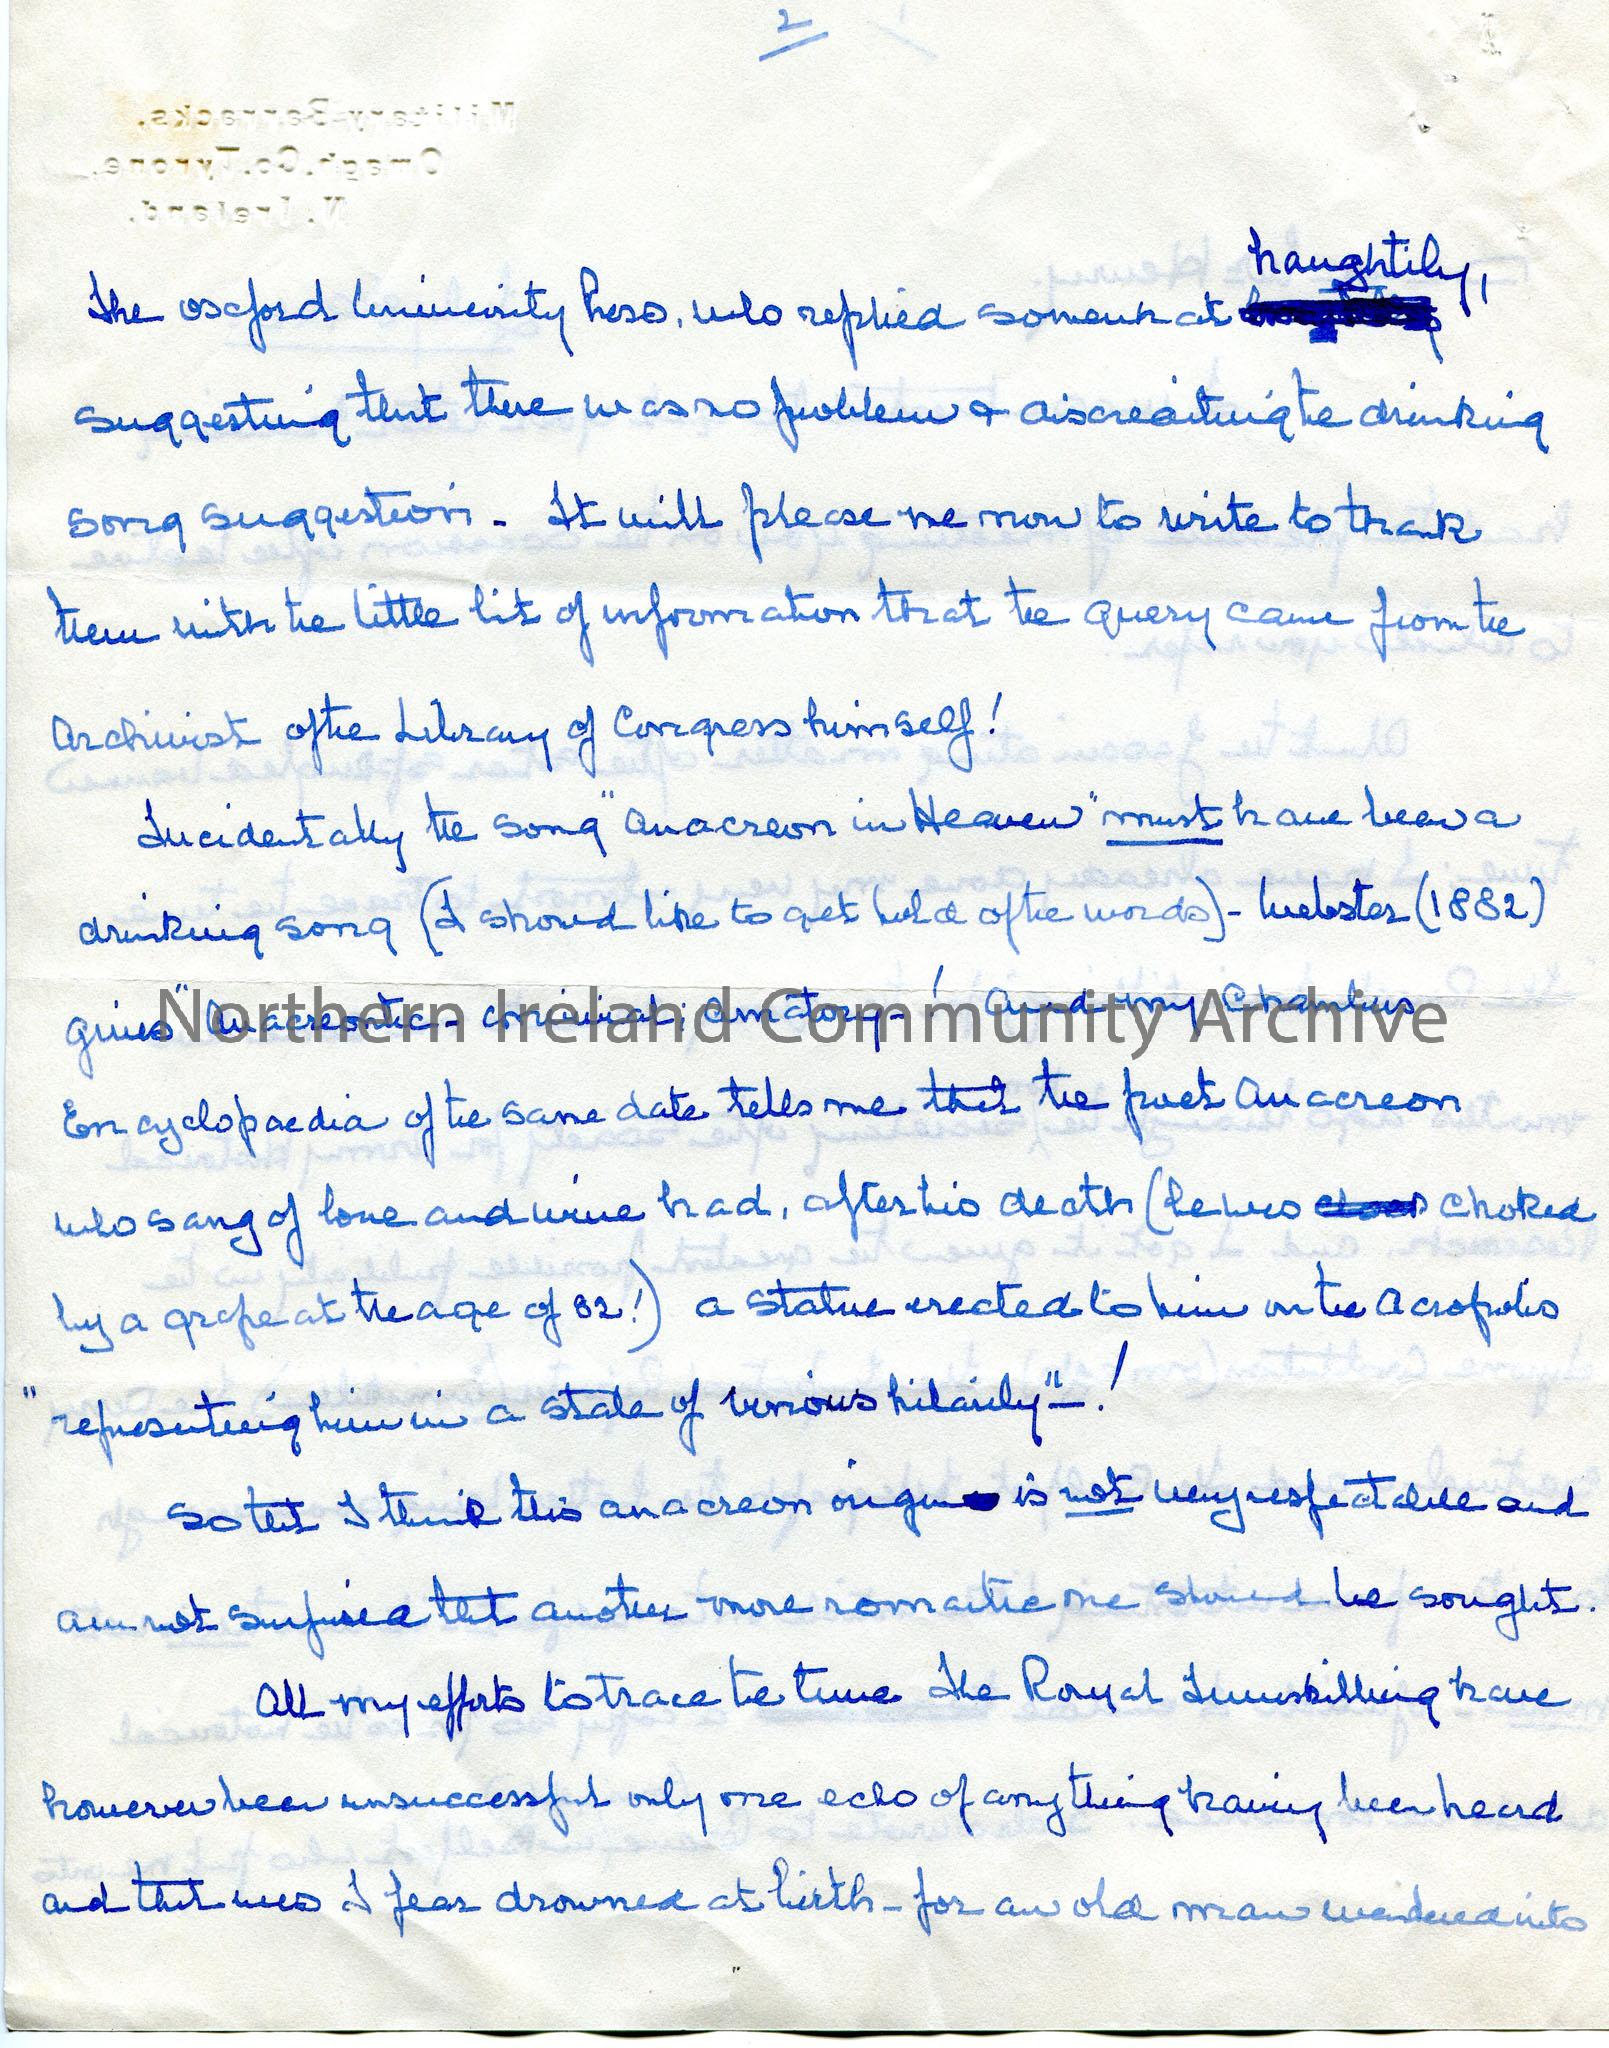 2
Military Barracks.
Omagh. Co. Tyrone.
N. Ireland.
haughtily,
The Oxford University Press, who replied somewhat
suggesting that there was no problem & discrediting the drinking
song suggestion - It will please me now to write to thank
them with the little bit of information that the query came from the
Archivist of the Library of Congress himself!
Incidentally the song "Anacreon in Heaven" must have been a
drinking song (I should like to get hold of the words) - Webster (1882)
gives "Anacreontic - convivial; amatory - ! And my Chambers
Northern Ireland Community Archive
Encyclopaedia of the same date tells me that the poet Anacreon
who sang of love and wine had, after his death (he was choked
by a grape at the age of 82!) a statue erected to him on the Acropolis
"representing him in a state of vinious hilarity" - !
So that I think this anacreon origin is not very respectable and
am not surprised that another more romantic one should be sought.
All my efforts to trace the tune The Royal Inniskilling have
however been unsuccessful only one echo of anything having been heard
and that was I fear drowned at birth - for an old man wandered into